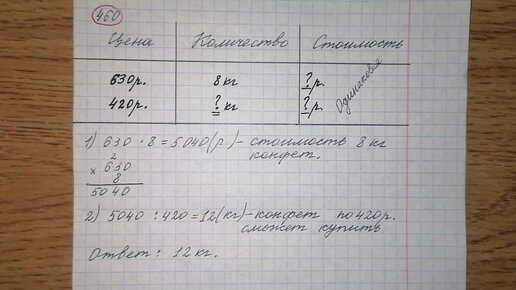 460
Цена Количество Стоимость
630р. 8 кг ? р.
420р. ? кг ? р.
Одинаковая
1) 630 · 8 = 5040 (р.) - стоимость 8 кг
конфет.
2
× 630
8
5040
2) 5040 : 420 = 12 (кг) - конфет по 420р.
сможет купить
Ответ: 12 кг.